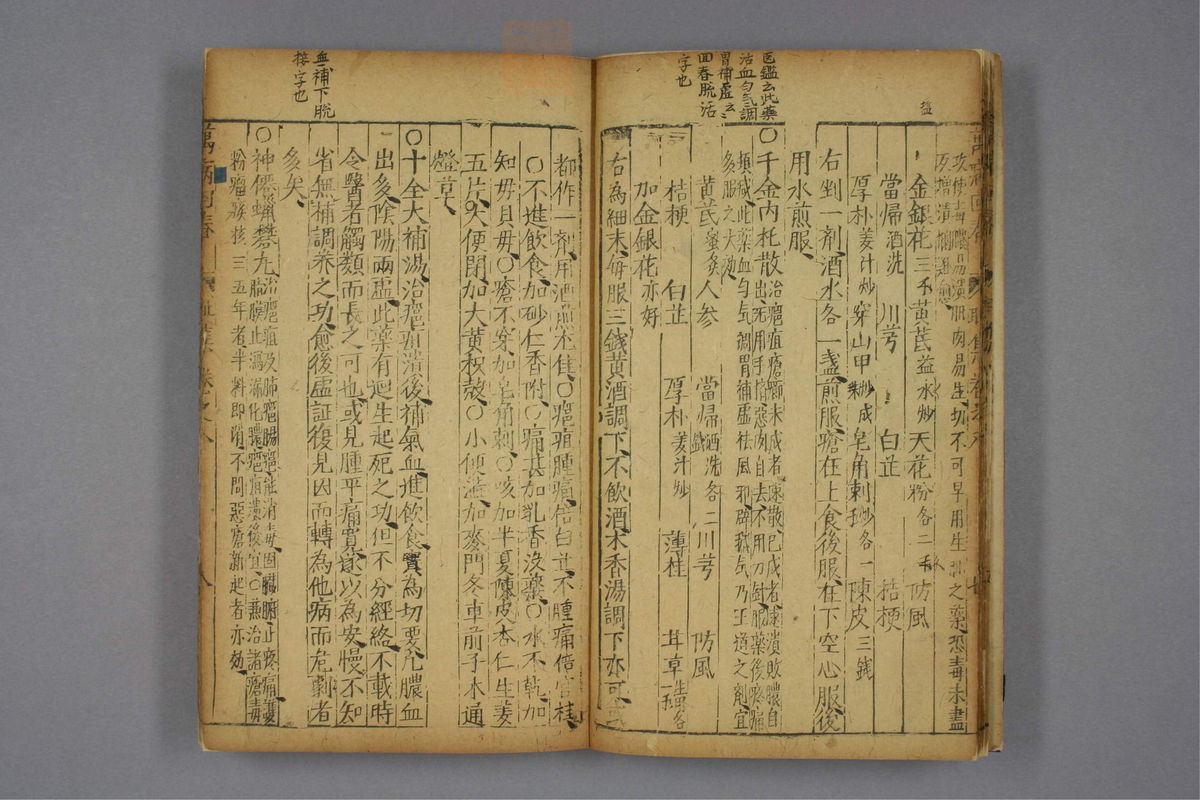 医鑑云此藥
活血勻気調
胃補虛云々
回春脫活
字也
攻使毒 肌肉易生切不可早用生肌之藥恐毒未盡
反增潰爛
金銀花三不 黃芪益水炒 天花粉各二不 防風
當歸酒洗 川芎 白芷 桔梗
厚朴姜汁炒 穿山甲炒成 皂角刺炒各一 陳皮三錢
右剉一劑酒水各一盞煎服瘡在上食後服在下空心服後
用水煎服
○千金內托散治癰疽瘡癤未成者速散已成者速潰敗膿自
出无用手擠惡肉自去不用刀針服藥後疼痛
頓減此藥血勻气調胃補虛祛風邪辟穢气乃王道之劑宜
多服之大効
黃芪蜜炙 人参 當歸酒洗各二錢 川芎 防風
桔梗 白芷 厚朴姜汁炒 薄桂 甘草生各一不
加金銀花亦好
右為細末每服三錢黃酒調下不飲酒木香湯調下亦可
都作一劑用酒煎尤佳○癰疽腫痛倍白芷不腫痛倍官桂
○不進飲食加砂仁香附○痛甚加乳香沒藥○水不乾加
知母貝母○瘡不穿加皂角刺○咳加半夏陳皮杏仁生姜
五片○大便閉加大黃枳殼○小便澁加麥門冬車前子木通
燈草
○十全大補湯治癰疽潰後補氣血進飲食實為切要凡膿血
出多陰陽兩虛此藥有廻生起死之功但不分經絡不載時
令醫者觸類而長之可也或見腫平痛寬遂以為安慢不知
省無補調养之功愈後虛証復見因而轉為他病而危劇者
多矣
○神僊蠟礬丸治癰疽及肺癰腸癰能消毒固臟腑止疼痛護
膈膜止瀉漏化膿癰疽潰後宜○兼治諸瘡毒
粉瘤瘰核三五年者半料即消不問惡瘡新起者亦効
血補下脫
接字也